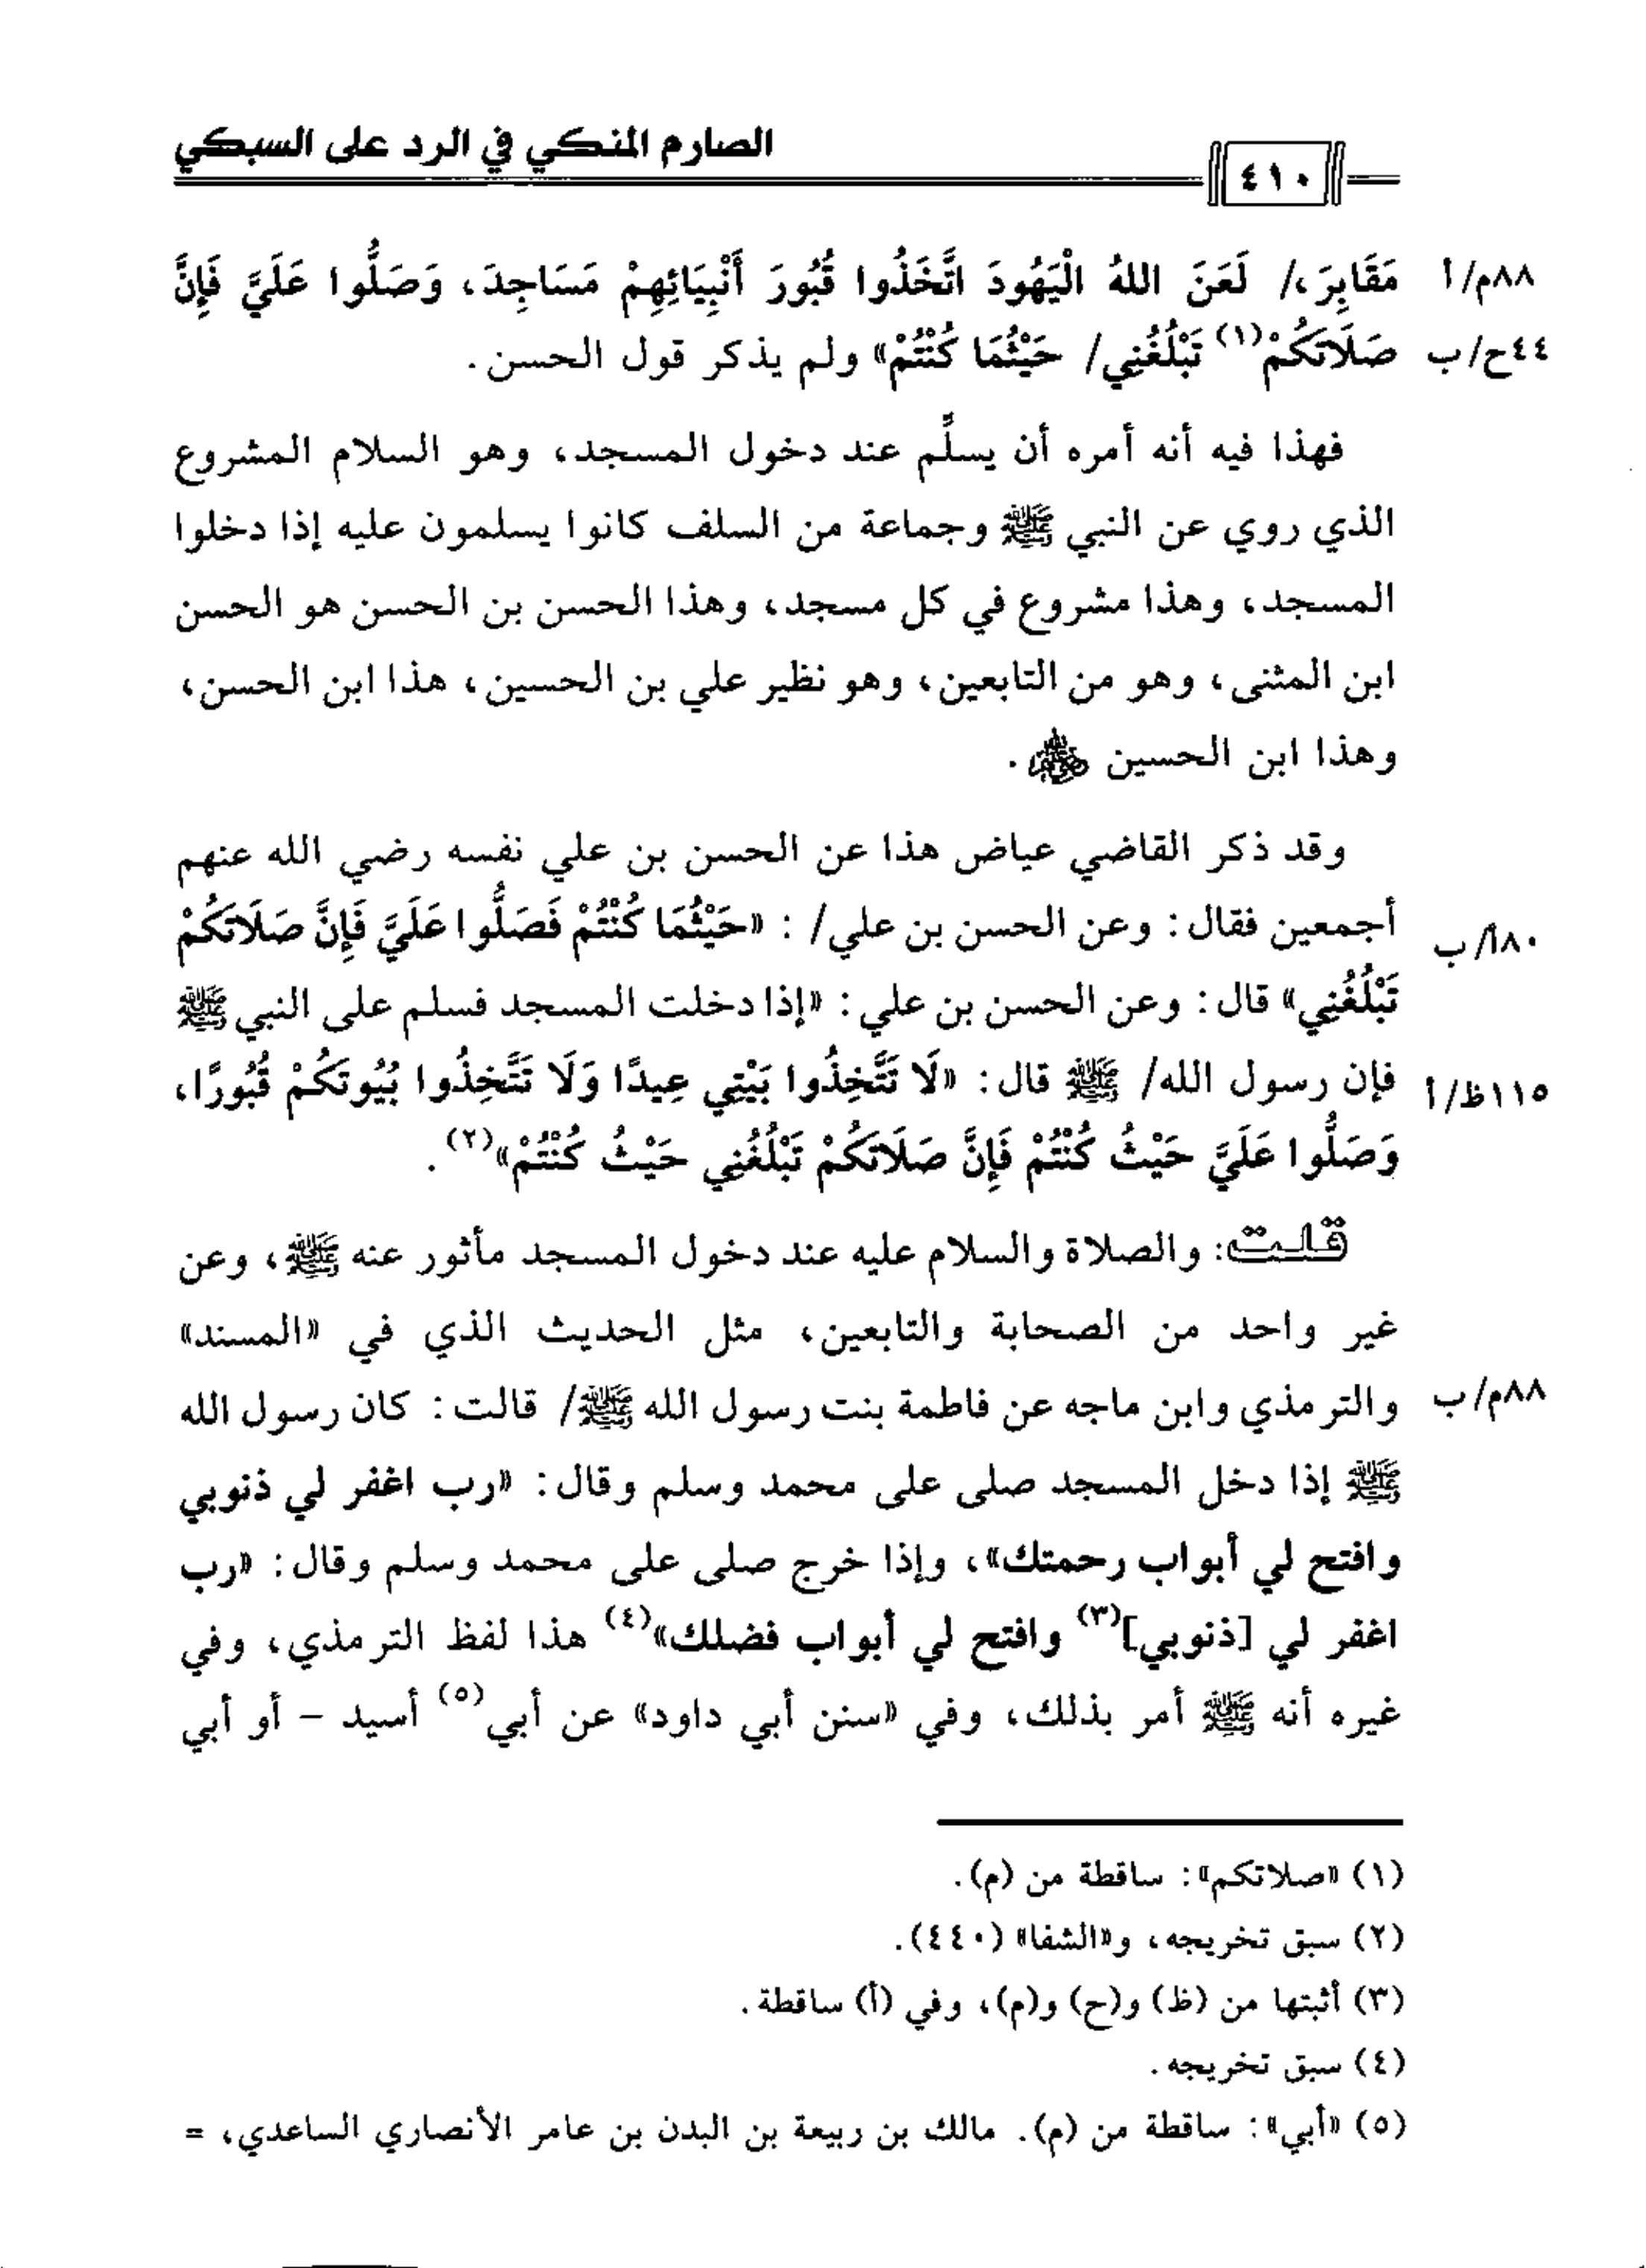 الصارم المنكي في الرد على السبكي
٤١٠
مَقَابِرَ،/ لَعَنَ اللهُ الْيَهُودَ اتَّخَذُوا قُبُورَ أَنْبِيَائِهِمْ مَسَاجِدَ، وَصَلُّوا عَلَيَّ فَإِنَّ
٨٨م/أ
صَلَاتَكُمْ(١) تَبْلُغُنِي/ حَيْثُمَا كُنْتُمْ» ولم يذكر قول الحسن.
٤٤ح/ب
فهذا فيه أنه أمره أن يسلِّم عند دخول المسجد، وهو السلام المشروع
الذي روي عن النبي ﷺ وجماعة من السلف كانوا يسلمون عليه إذا دخلوا
المسجد، وهذا مشروع في كل مسجد، وهذا الحسن بن الحسن هو الحسن
ابن المثنى، وهو من التابعين، وهو نظير علي بن الحسين، هذا ابن الحسن،
وهذا ابن الحسين .
وقد ذكر القاضي عياض هذا عن الحسن بن علي نفسه رضي الله عنهم
أجمعين فقال: وعن الحسن بن علي/ : «حَيْثُمَا كُنْتُمْ فَصَلُّوا عَلَيَّ فَإِنَّ صَلَاتَكُمْ
٨٠أ/ب
تَبْلُغُنِي» قال: وعن الحسن بن علي: «إذا دخلت المسجد فسلم على النبي ﷺ
فإن رسول الله/ ﷺ قال: «لَا تَتَّخِذُوا بَيْتِي عِيدًا وَلَا تَتَّخِذُوا بُيُوتَكُمْ قُبُورًا،
١١٥ظ/أ
وَصَلُّوا عَلَيَّ حَيْثُ كُنْتُمْ فَإِنَّ صَلَاتَكُمْ تَبْلُغُنِي حَيْثُ كُنْتُمْ»(٢).
قلت: والصلاة والسلام عليه عند دخول المسجد مأثور عنه ﷺ، وعن
غير واحد من الصحابة والتابعين، مثل الحديث الذي في «المسند»
والترمذي وابن ماجه عن فاطمة بنت رسول الله ﷺ/ قالت: كان رسول الله
٨٨م/ب
ﷺ إذا دخل المسجد صلى على محمد وسلم وقال: «رب اغفر لي ذنوبي
وافتح لي أبواب رحمتك»، وإذا خرج صلى على محمد وسلم وقال: «رب
اغفر لي [ذنوبي](٣) وافتح لي أبواب فضلك»(٤) هذا لفظ الترمذي، وفي
غيره أنه ﷺ أمر بذلك، وفي «سنن أبي داود» عن أبي(٥) أسيد - أو أبي
(١) «صلاتكم»: ساقطة من (م).
(٢) سبق تخريجه، و«الشفا» (٤٤٠).
(٣) أثبتها من (ظ) و(ح) و(م)، وفي (أ) ساقطة.
(٤) سبق تخريجه.
(٥) «أبي»: ساقطة من (م). مالك بن ربيعة بن البدن بن عامر الأنصاري الساعدي، =